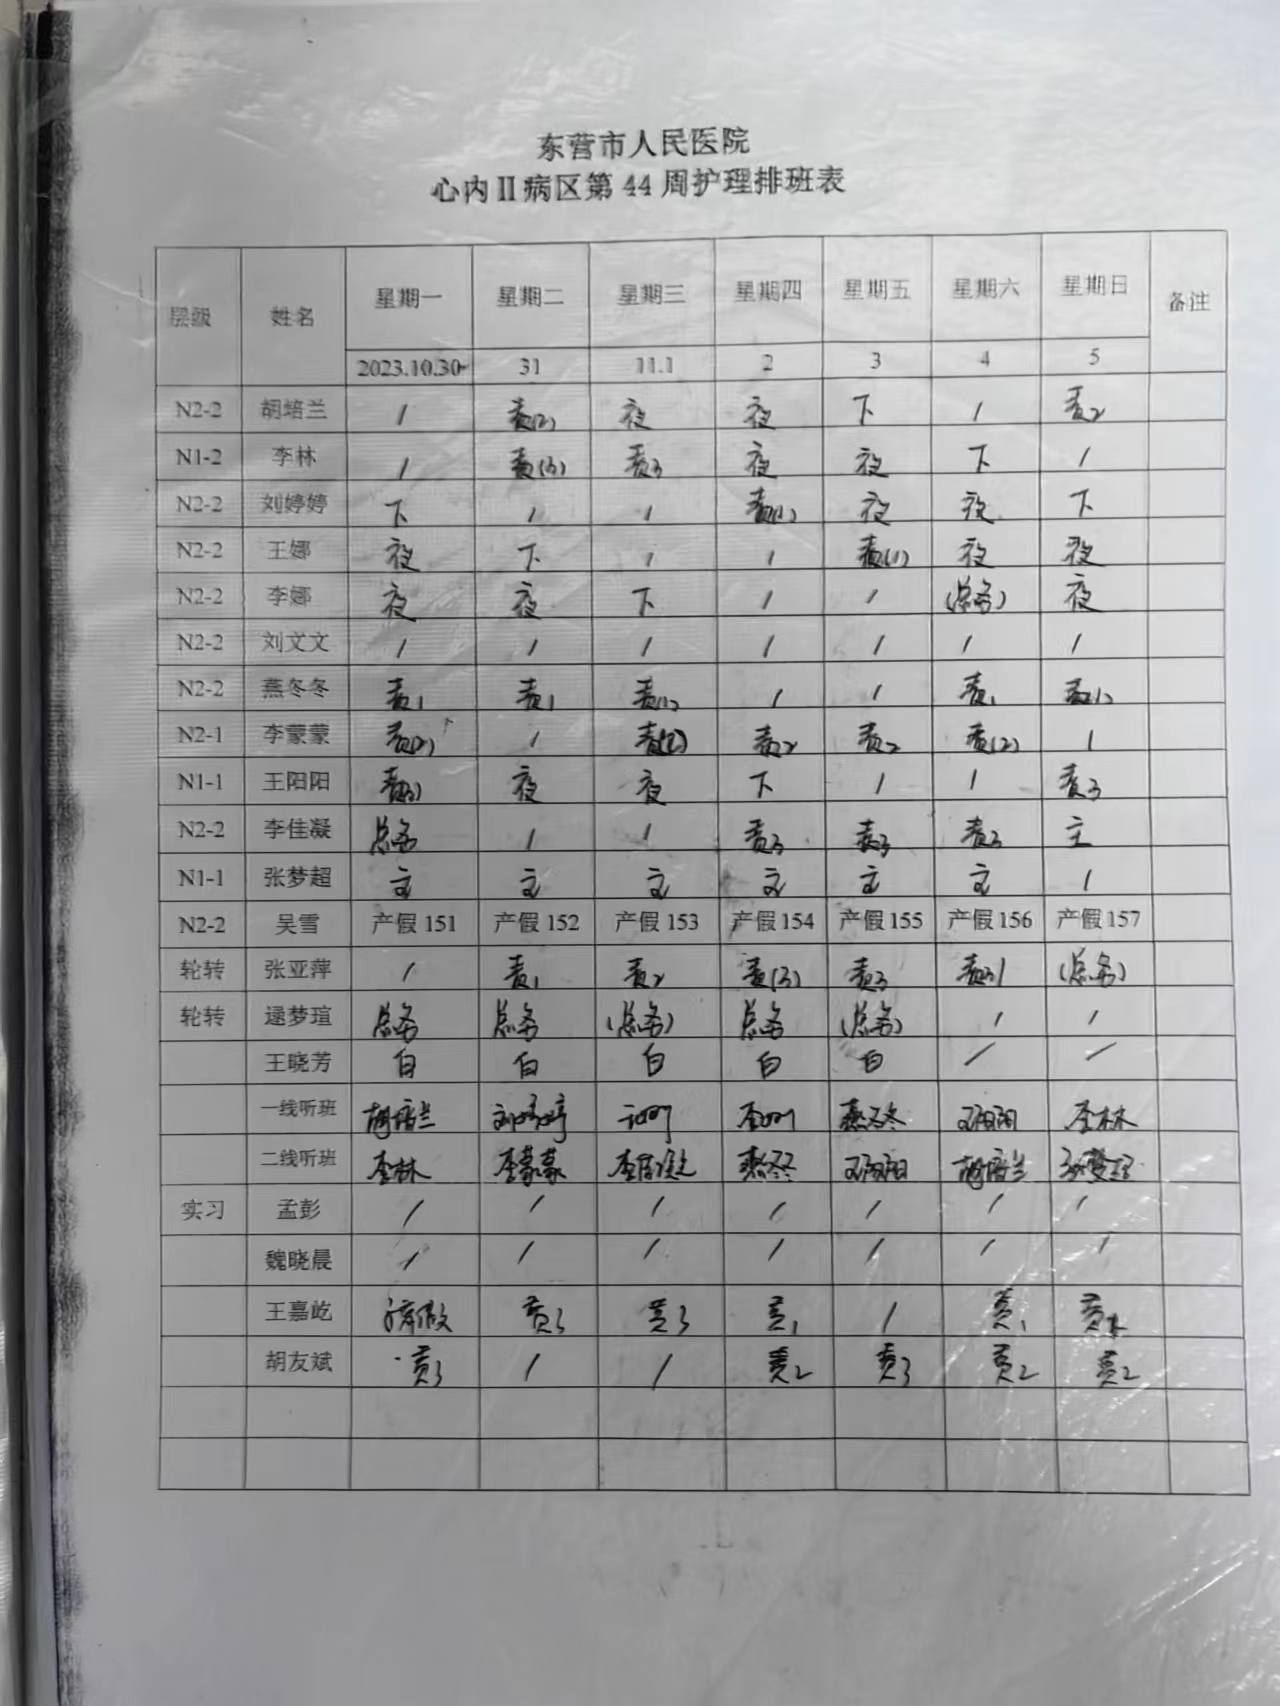 东营市人民医院
心内Ⅱ病区第 44 周护理排班表
层级 姓名 星期一 星期二 星期三 星期四 星期五 星期六 星期日 备注
2023.10.30 31 11.1 2 3 4 5
N2-2 胡培兰 / 责(2) 夜 夜 下 / 责2
N1-2 李林 / 责(3) 责3 夜 夜 下 /
N2-2 刘婷婷 下 / / 责(1) 夜 夜 下
N2-2 王娜 夜 下 / / 责(1) 夜 夜
N2-2 李娜 夜 夜 下 / / (总务) 夜
N2-2 刘文文 / / / / / / /
N2-2 燕冬冬 责1 责1 责(1) / / 责1 责(1)
N2-1 李蒙蒙 责(2) / 责(2) 责2 责2 责(2) /
N1-1 王阳阳 责(3) 夜 夜 下 / / 责3
N2-2 李佳凝 总务 / / 责3 责3 责3 主
N1-1 张梦超 主 主 主 主 主 主 /
N2-2 吴雪 产假 151 产假 152 产假 153 产假 154 产假 155 产假 156 产假 157
轮转 张亚萍 / 责1 责2 责(3) 责3 责3 (总务)
轮转 逯梦瑄 总务 总务 (总务) 总务 (总务) / /
王晓芳 白 白 白 白 白 / /
一线听班 胡培兰 刘婷婷 李娜 燕冬冬 王阳阳 李林
二线听班 李林 李蒙蒙 李佳凝 燕冬冬 王阳阳 胡培兰 张梦超
实习 孟彭 / / / / / / /
魏晓晨 / / / / / / /
王嘉屹 病假 责3 责3 责1 / 责1 责
胡友斌 责3 / / 责2 责3 责2 责2